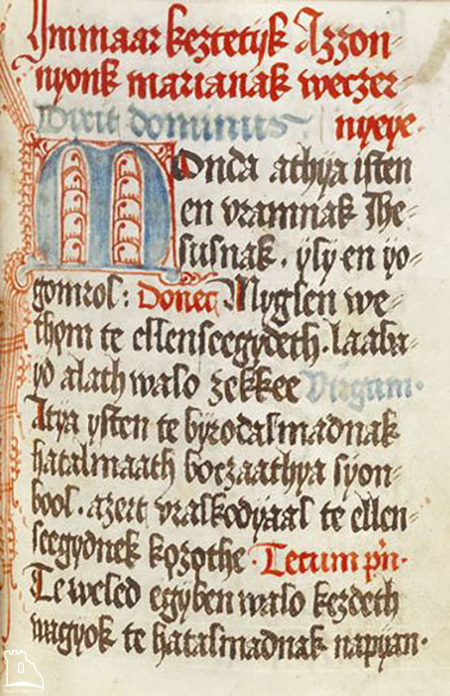 Immaar keztetyk Azzon⸗
nyonk marianak weczer⸗
Dixit dominus nyeye·
MOnda athya isten
en vramnak Ihe⸗
susnak · yly en yo⸗
gomrol : Donec Myglen we⸗
thom te ellenseegydeth · laaba⸗
yd alath walo zekkee Virgam·
Atya ysten te byrodalmadnak
hatalmaath boczaathya syon⸗
bool · azert vraskodyaal te ellen⸗
seegydnek kozothe · Tecum pn·
Te weled egyben walo kezdeth
wagyok te hatalmadnak napyan·